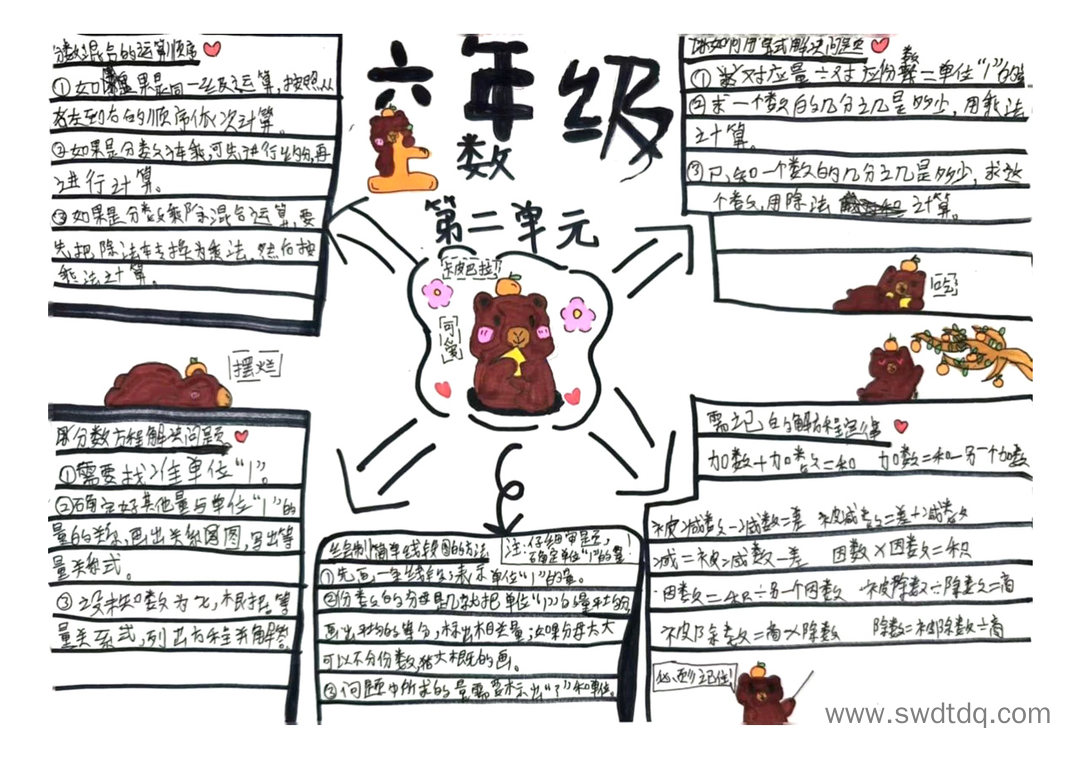 六年级
上
数
第二单元
卡皮巴拉
可爱
分数混合的运算顺序
①如果是同一级运算,按照从
左到右的顺序依次计算。
②如果是分数连乘,可先进行约分,再
进行计算。
③如果是分数乘除混合运算,要
先把除法转换为乘法,然后按
乘法计算。
摆烂
如何用算式解决问题
①对应量÷对应份数=单位“1”的量
②求一个数的几分之几是多少,用乘法
计算。
③已知一个数的几分之几是多少,求这
个数,用除法计算。
吃
用分数方程解决问题。
①需要找准单位“1”。
②确定好其他量与单位“1”的
量的关系,画出关系图,写出等
量关系式。
③设未知数为x,根据等
量关系式,列出方程并解答
绘制简单线段图的方法
注:仔细审题,
确定单位“1”的量
①先画一条线段,表示单位“1”的量。
②份数的分母是几就把单位“1”的量平均分
画出平均的等分,标出相差量;如果分母太大
可以不分份数,猪大概的画。
③问题中所求的量需要标出“?”和单位。
需记的解方程定律
加数+加数=和 加数=和-另一个加数
被减数-减数=差 被减数=差+减数
减=被减数-差 因数×因数=积
因数=积÷另一个因数 被除数÷除数=商
被除数=商×除数 除数=被除数÷商
必须记住!
www.swdtdq.com